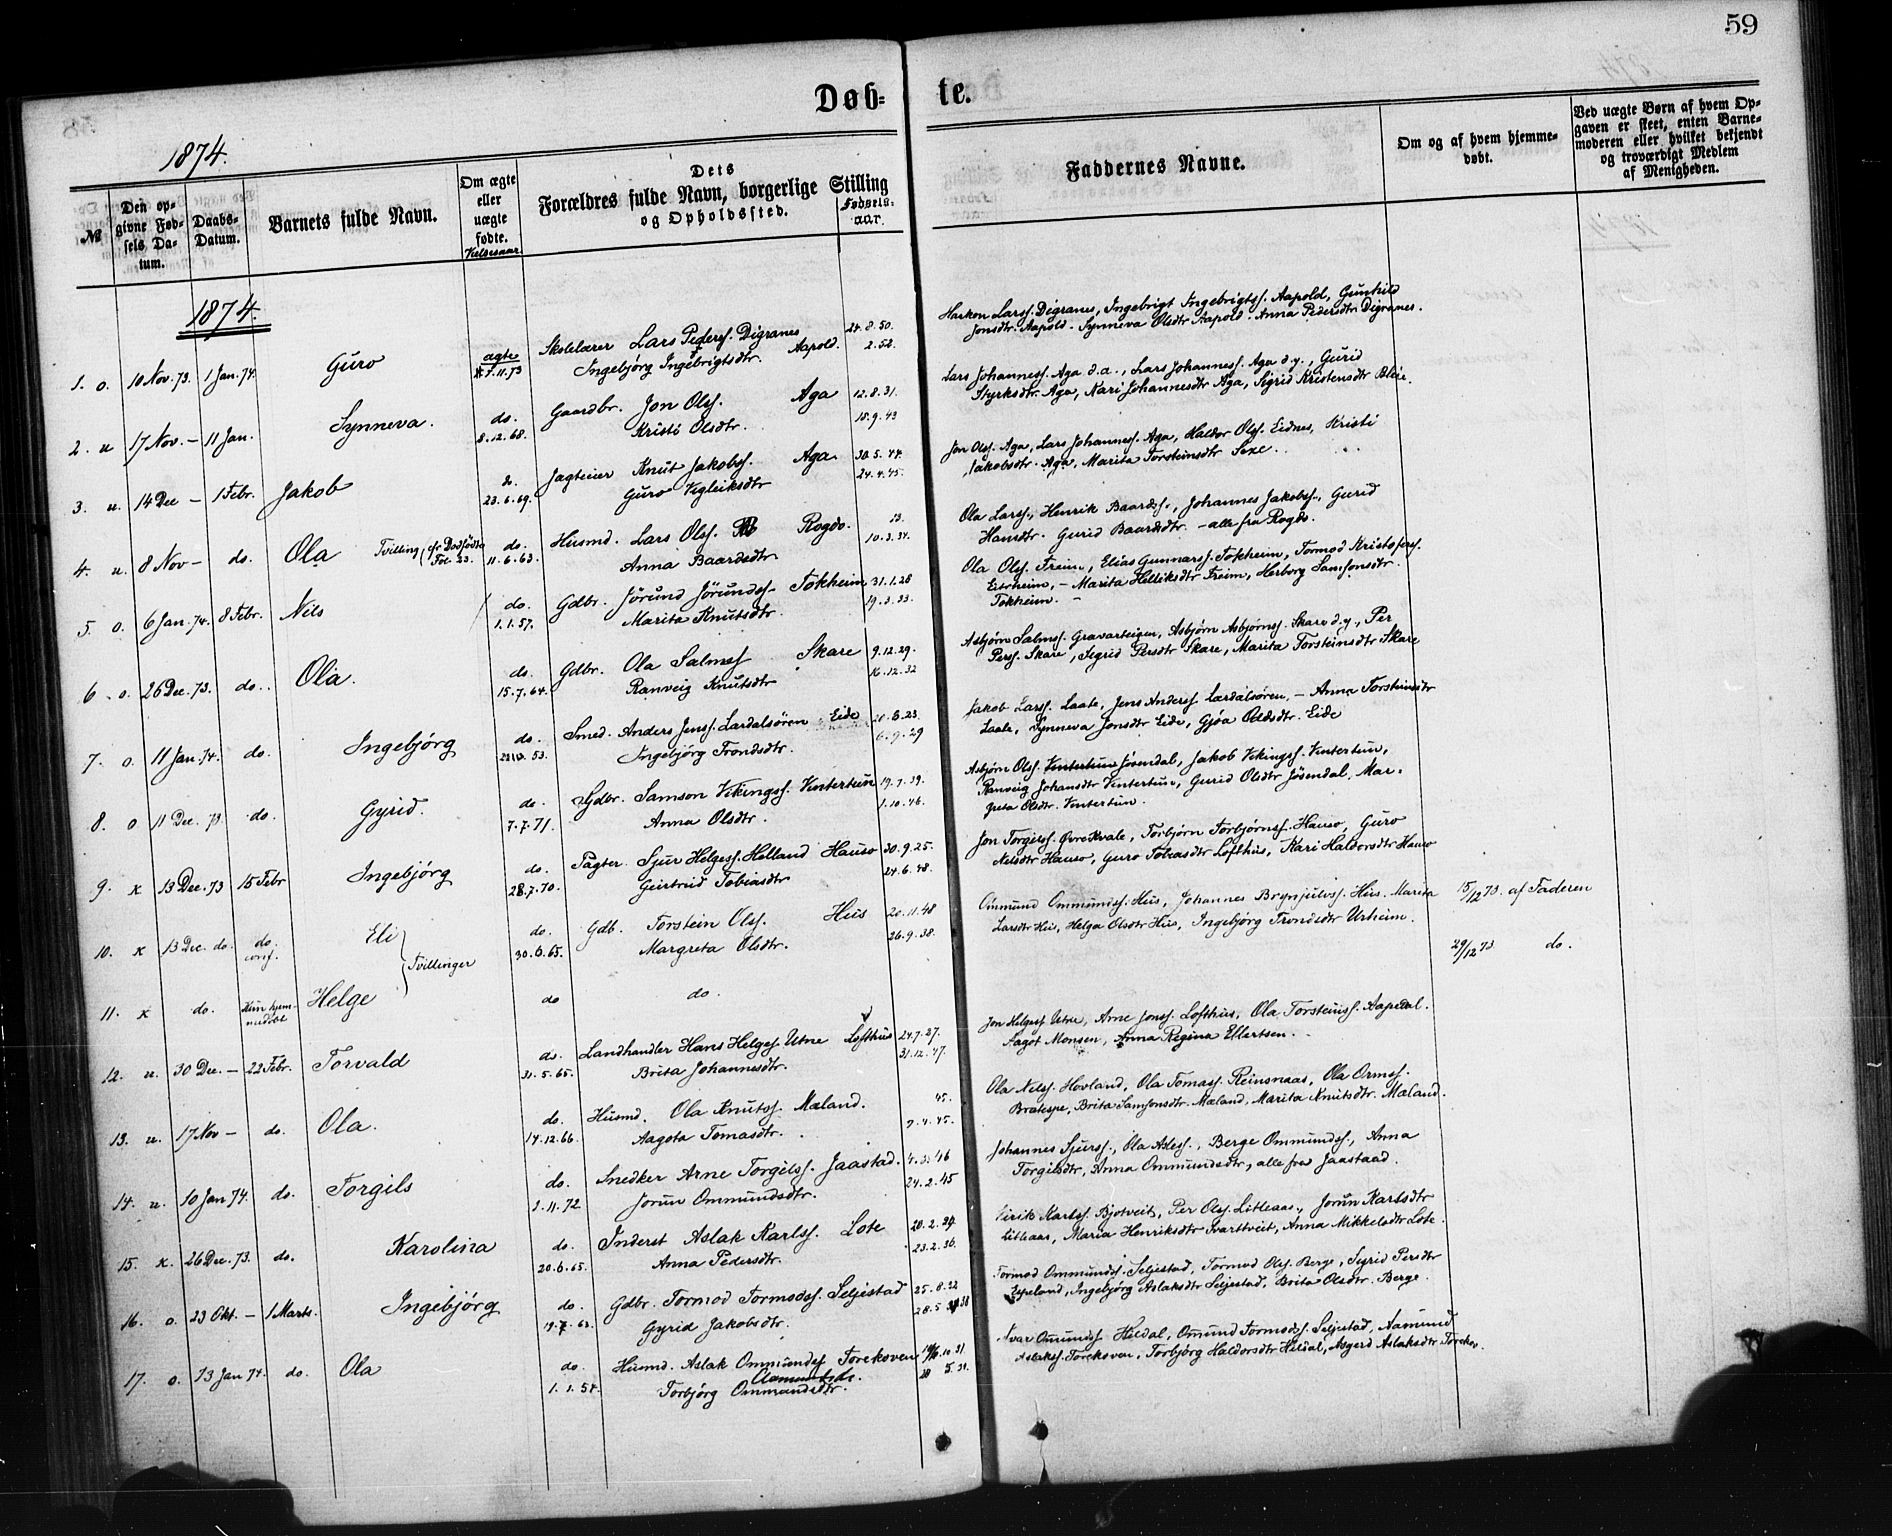 59
Døb=
te.
1874.
№
Den op-
givne Fød-
sels Da-
tum.
Daabs-
Datum.
Barnets fulde Navn.
Om ægte
eller
uægte
fødte.
Vielsesaar
Dets
Forældres fulde Navn, borgerlige Stilling
og Opholdssted.
Fødsels-
aar.
Faddernes Navne.
Om og af hvem hjemme-
døbt.
Ved uægte Børn af hvem Op-
gaven er skeet, enten Barne-
moderen eller hvilket bekjendt
og troværdigt Medlem
af Menigheden.
1874.
1. o. 10 Nov. 73. 1 Jan. 74. Guro ægte 7.11.73 Skolelærer Lars Peders. Digranes 24.8.50.
Ingebjørg Ingebrigtsdtr. Aapold. 2.52.
Haakon Larss. Digranes, Ingebrigt Ingebrigtss. Aapold, Gunhild
Jonsdtr. Aapold. Synneva Olsdtr Aapold. Anna Pedersdtr Digranes.
2. u 17 Nov. – 11 Jan. Synneva. do. 8.12.68. Gaardbr. Jon Olss. Aga 12.8.31.
Kristi Olsdtr. 15.9.43
Lars Johanness. Aga d.æ., Lars Johanness. Aga d.y., Gurid
Styrksdtr. Aga, Nari Johannesdtr Aga, Sigrid Kristensdtr Bleie.
3. u. 14 Dec – 1 Febr. Jakob do. 23.6.69. Jagteier Knut Jakobss. Aga 30.5.44.
Guro Vigleiksdtr 24.4.45.
Jon Olss. Aga, Lars Johanness. Aga, Haldor Olss. Eidnes, Kristi
Jakobsdtr. Aga, Marita Torsteinsdtr Sexe.
4. u. 8 Nov – do. Ola Tvilling (cfr Dødfødte Fol. 23. do. 11.6.63. Husmd. Lars Olss. Rogdo. 13.
Anna Baardsdtr 10.3.34.
Ola Larss., Henrik Baardss., Johannes Jakobss., Gurid
Hansdtr. Gurid Baardsdtr. – alle fra Rogdo.
5. o. 6 Jan. 74. 8 Febr. Nils do. 1.1.57. Gdbr. Jörund Jörundss. Tokheim 31.1.28
Marita Knutsdtr. 19.3.33.
Ola Olss. Freim, Elias Gunnarss. Tokheim, Tormod Kristofers.
Eitrheim, – Marita Helliksdtr Freim, Herborg Samsonsdtr.
Tokheim. –
6. o. 26 Dec. 73. do. Ola. do. 15.7.64. Gdbr. Ola Salmss Skare 9.12.29.
Ranveig Knutsdtr 16.12.32
Asbjørn Salms. Gravarteigen, Asbjørn Asbjørns. Skare d.y., Per
Perss. Skare, Sigrid Persdtr Skare, Marita Torsteinsdtr Skare
7. o. 11 Jan. 74. do. Ingebjörg do. Smed. Anders Jenss. Lærdalsören. Eide
Ingebjörg Trondsdtr. 6.9.29
Jakob Larss. Laate, Jens Anderss Lærdalsören, – Anna Torsteinsdtr
Laate, Synneva Jonsdtr Eide, Gjøa Oddsdtr. Eide
8. o 11 Dec. 73. do. Gyrid. do. 7.7.71. Gdbr. Samson Vikingss. Vintertun 19.7.39.
Anna Olsdtr. 1.10.46.
Asbjörn Olss. Vintertun Jösendal, Jakob Vikingss. Vintertun,
Ranveig Johansdtr Vintertun, Gurid Olsdtr Jösendal, Mar-
greta Olsdtr. Vintertun.
9. k 13 Dec. 73 15 Febr Ingebjörg do. 28.7.70. Pagter. Sjur Helgess. Helland Hauso 30.9.25.
Geirtrud Tobiasdtr 24.6.48.
Jon Torgilss. Övre Kvale, Torbjörn Torbjörnss. Hauso, Guro
Nilsdtr Hauso, Guro Tobiasdtr Lofthus, Kari Haldorsdtr Hauso
10. k 13 Dec. do. do. conf. Eli do. 30.6.65. Gdb. Torstein Olss. Hus 20.11.48
Tvillinger
Margreta Olsdtr. 26.9.38.
Ommund Ommundss. Hus, Johannes Brynjulvss. Hus. Marita
Larsdtr Hus, Helga Olsdtr Hus, Ingebjörg Trondsdtr Urheim.
15/12 73. af Faderen
11. k do. Kun hjem-
medöbt Helge do do.
29/12 73 do.
12. u. 30 Dec. – 22 Febr. Torvald do. 31.5.65. Landhandler Hans Helges Utne Lofthus 24.7.27.
Brita Johannesdtr. 31.12.47.
Jon Helgess Utne, Arne Jonss. Lofthus, Ola Torsteinss. Aapedal.
Aagot Monsen, Anna Regina Ellertsen.
13. u. 17 Nov – do. Ola. do. 14.12.66. Husmd. Ola Knutss. Mæland. 45.
Aagota Tomasdtr. 7.4.45.
Ola Nilss. Hovland, Ola Tomass. Reinsnaas, Ola Ormss.
Bratespe, Brita Samsonsdtr. Mæland, Marita Knutsdtr. Mæland.
14. u. 10 Jan 74. do. Torgils do. 1.11.72 Snedker Arne Torgilss. Jaastad. 4.3.46
Jorun Ommundsdtr. 24.2.45
Johannes Sjurss., Ola Asless., Berge Ommundss., Anna
Torgilsdtr, Anna Ommundsdtr, alle fra Jaastaad.
15. k. 26 Dec. 73. do. Karolina do. 20.6.65. Inderst Aslak Karlss. Lote 20.2.29.
Anna Pedersdtr. 23.2.36.
Eirik Karlss. Bjotveit, Per Olss. Litleaas, Jorun Karlsdtr
Litleaas, Maria Henriksdtr Svarttveit, Anna Mikkelsdtr Lote.
16. o. 23 Okt. – 1 Marts. Ingebjörg do. Gdbr. Tormod Tormodss. Seljestad 25.8.22
Gyrid Jakobsdtr.
Tormod Ommundss. Seljestad, Tormod Olss. Berge, Sigrid Persdtr
Espeland, Ingebjörg Aslaksdtr Seljestad, Brita Olsdtr. Berge.
17. o. 13 Jan 74. do. Ola do. 1.1.57. Husmd. Aslak Ommundss Torekoven
Aamundsdtr.
Torbjörg Ommundsdtr.
Ivar Omundss. Hildal, Omund Tormodss. Seljestad, Aamund
Aslakss. Torekoven, Torbjörg Haldorsdtr Hildal, Asgerd Aslaksdtr Torekov.